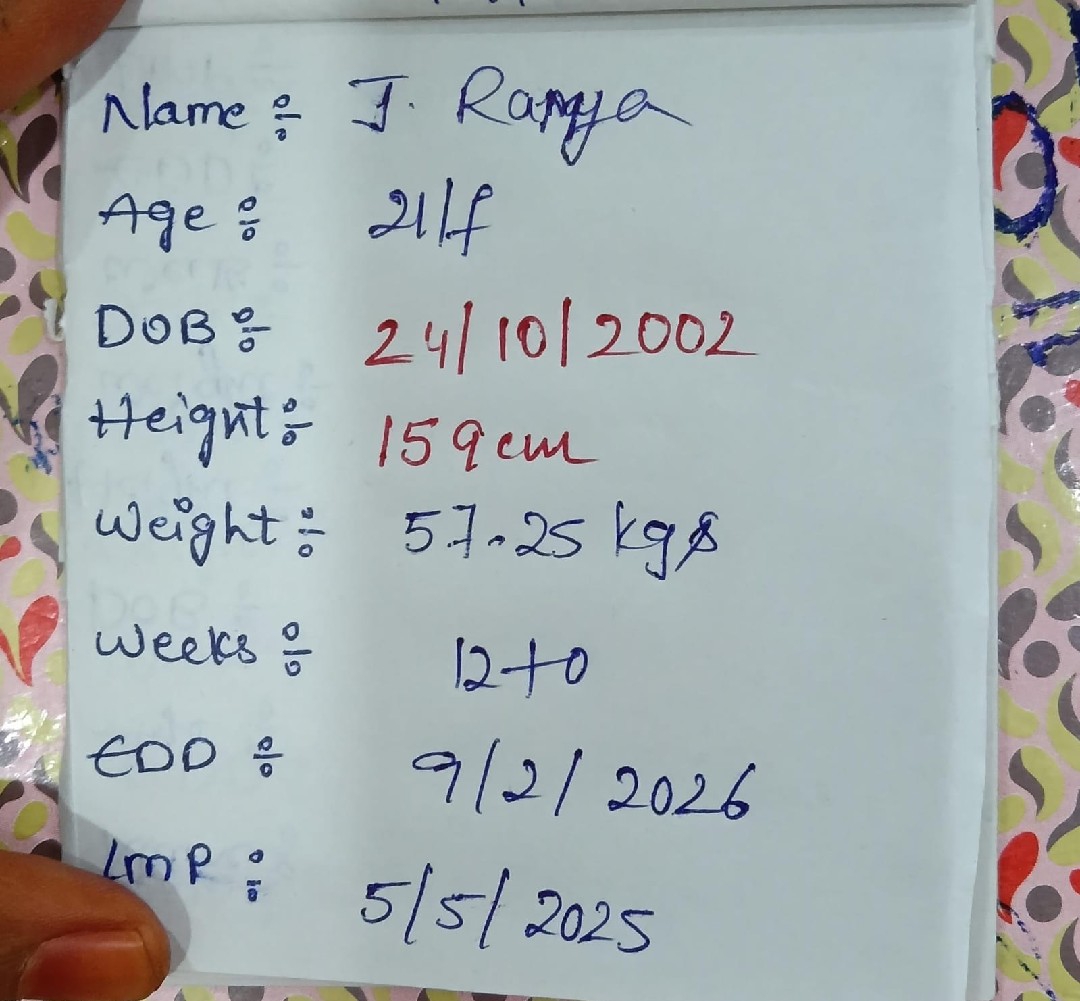 Name ÷ J. Ramya
Age ÷ 21/f
DOB ÷ 24/10/2002
Height ÷ 159 cm
Weight ÷ 57.25 kgs
Weeks ÷ 12+0
EDD ÷ 9/2/2026
LMP ÷ 5/5/2025